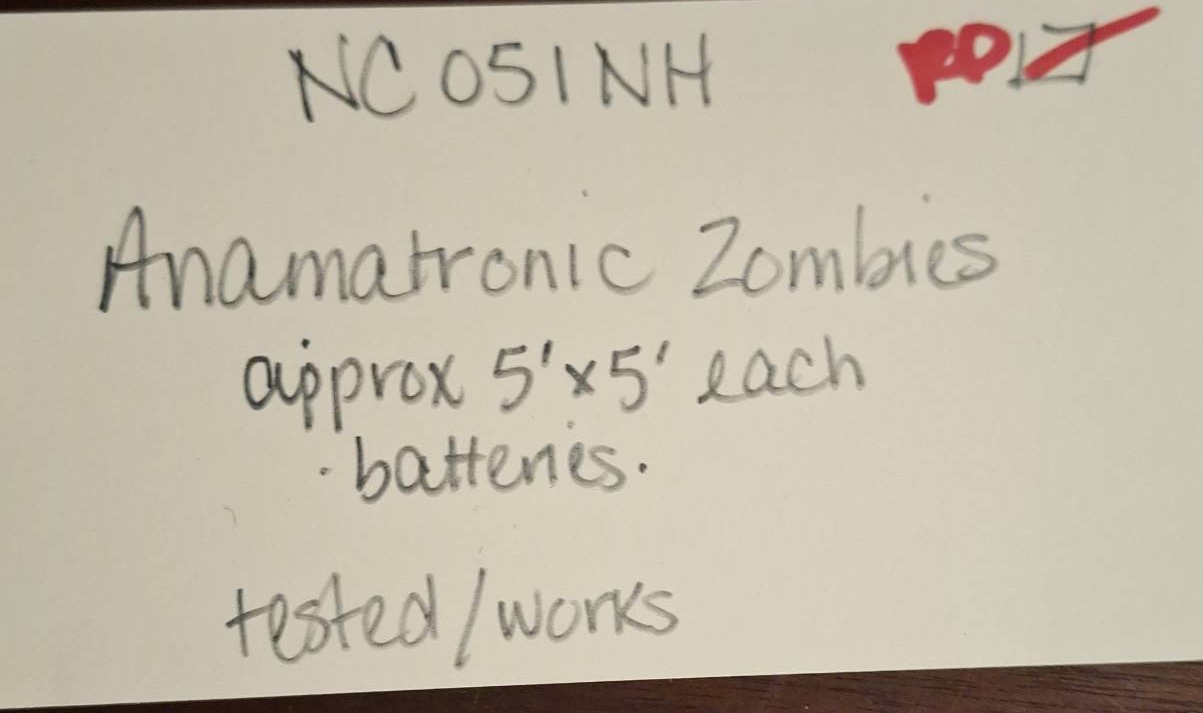 NC 051 NH
Anamatronic Zombies
approx 5'x5' each
· batteries.
tested/works